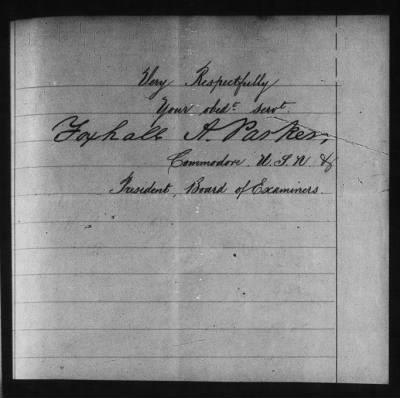 Very Respectfully
Your obedt. servt
Foxhall A. Parker,
Commodore U.S.N. &
President, Board of Examiners.